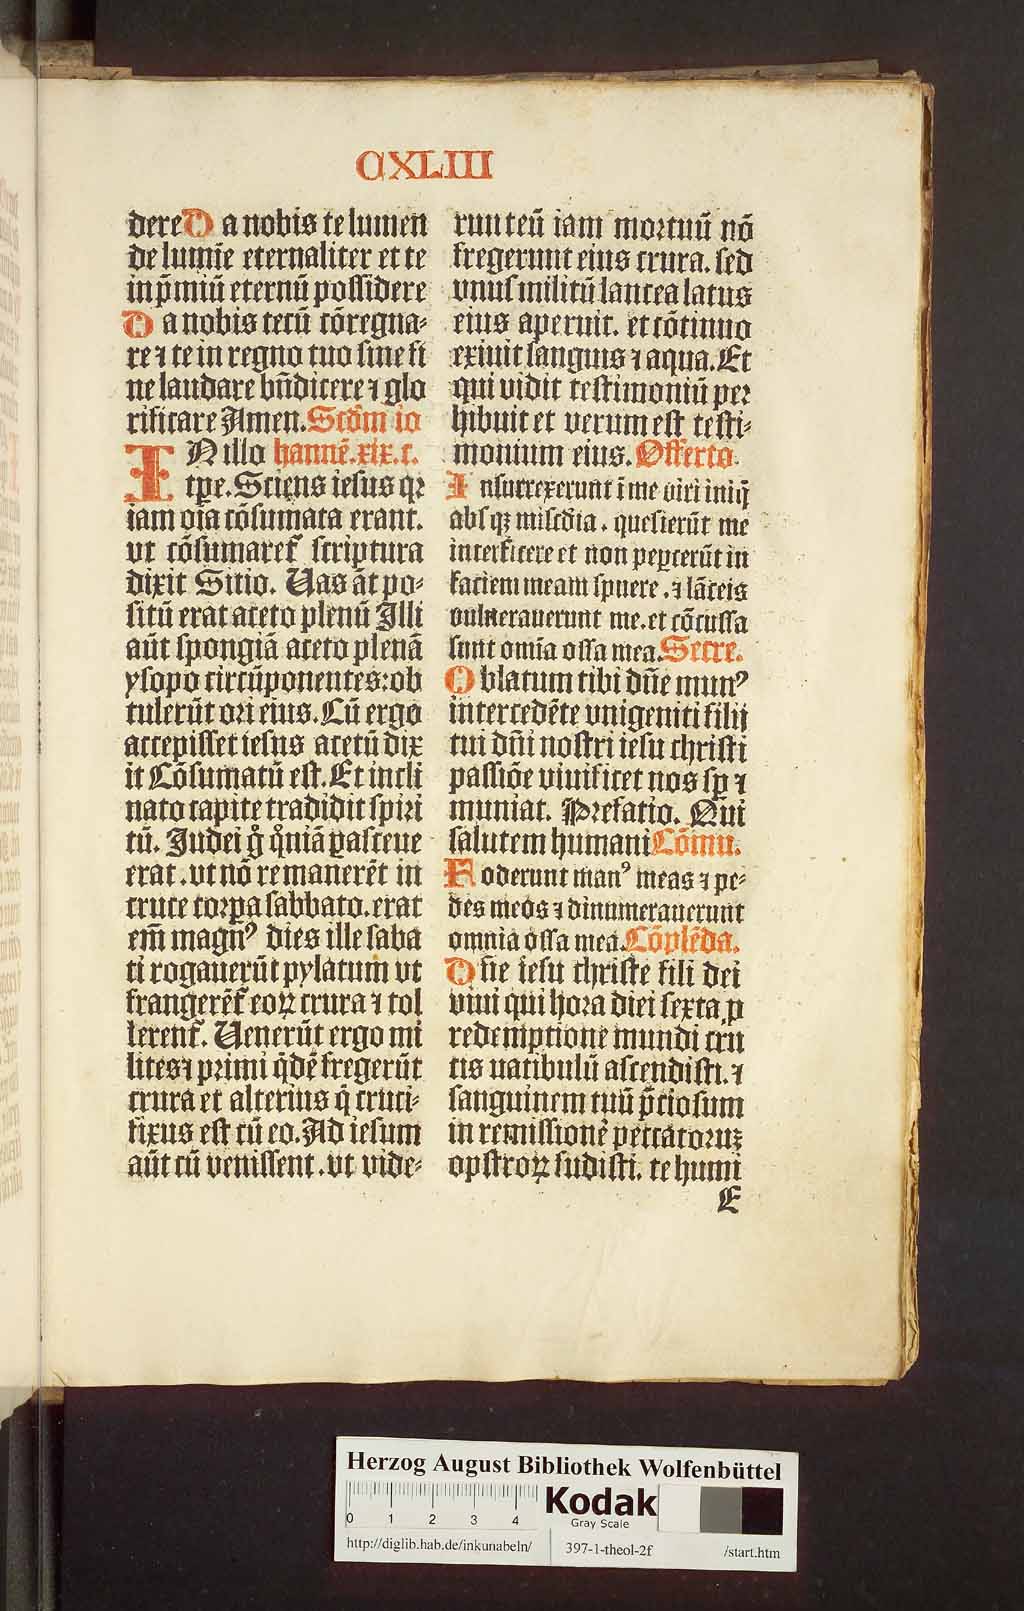 CXLIII
dere Da nobis te lumen
de lumīe eternaliter et te
in p̄miū eternū possidere
Da nobis tecū cōregna⸗
re ⁊ te in regno tuo sine fi
ne laudare bn̄dicere ⁊ glo
rificare Amen. Scd̄m io
IN illo hannē.xix.c.
tꝑe. Sciens iesus qꝛ
iam oīa cōsumata erant.
vt cōsumaret᷑ scriptura
dixit Sitio. Uas āt po⸗
sitū erat aceto plenū Illi
aūt spongiā aceto plenā
ysopo circūponentes: ob
tulerūt ori eius. Cū ergo
accepisset iesus acetū dix
it Cōsumatū est. Et incli
nato capite tradidit spiri
tū. Judei gͦ qͦniā ꝑasceue
erat. vt nō remanerēt in
cruce corꝑa sabbato. erat
em̄ magnꝰ dies ille saba
ti rogauerūt pylatum vt
frangerēt᷑ eoꝝ crura ⁊ tol
lerent᷑. Uenerūt ergo mi
lites ⁊ primi q̄dē fregerūt
crura et alterius q̄ cruci⸗
fixus est cū eo. Ad iesum
aūt cū venissent. vt vide⸗
runt eū iam mortuū nō
fregerunt eius crura. sed
vnus militū lancea latus
eius aperuit. et cōtinuo
exiuit sanguis ⁊ aqua. Et
qui vidit testimoniū per
hibuit et verum est testi⸗
monium eius. Offerto.
Insurrexerunt ī me viri iniq̄
absqꝫ miscd̄ia. quesierūt me
interficere et non peꝑcerūt in
faciem meam spuere. ⁊ lāceis
vulnerauerunt me. et cōcussa
sunt omīa ossa mea. Secre.
Oblatum tibi dn̄e munꝰ
intercedēte vnigeniti filij
tui dn̄i nostri iesu christi
passiōe viuificet nos sꝑ ⁊
muniat. Prefatio. Qui
salutem humani Cōmu.
Foderunt manꝰ meas ⁊ pe⸗
des meos ⁊ dinumerauerunt
omnia ossa mea. Cōplēda.
Dn̄e iesu christe fili dei
viui qui hora diei sexta ꝓ
redemptione mundi cru
cis patibulū ascendisti. ⁊
sanguinem tuū p̄ciosum
in remissionē peccatoruꝫ
nostroꝝ fudisti. te humi
E
Herzog August Bibliothek Wolfenbüttel
0 1 2 3 4
Kodak
Gray Scale
http://diglib.hab.de/inkunabeln/ 397-1-theol-2f /start.htm